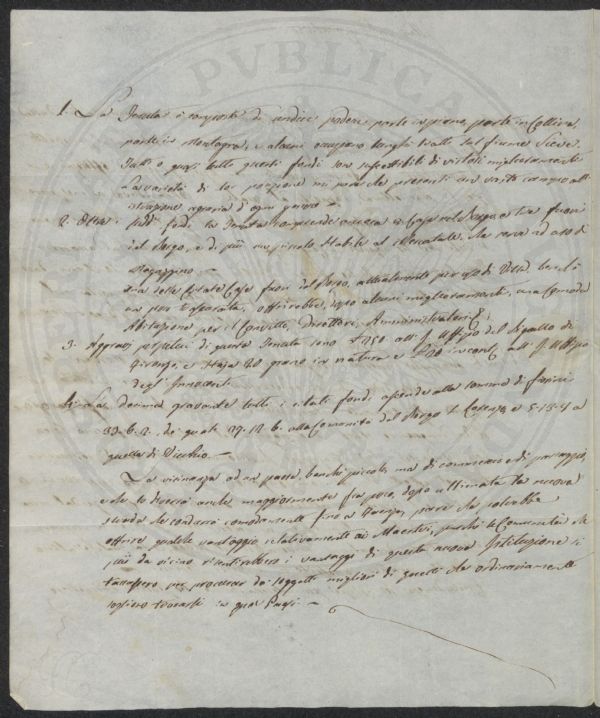 1. La Tenuta è composta di undici poderi parte in piano, parte in Collina,
parte in Montagna, e alcuni occupano lunghi tratti sul fiume Sieve.
Tutti o quasi tutti questi fondi son suscettibili di vistosi miglioramenti
La varietà di lor posizione mi pare che presenti un vasto campo all'
istruzione agraria d'ogni genere —
2. Oltre i fondi la Tenuta comprende ancora Case nel Borgo e fuori
del Borgo, e di più un piccolo stabile al Mercatale, che serve ad uso di
Magazzino —
Una delle citate Case fuori del Borgo, attualmente per uso di Villa, benchè
un poco trascurata, offrirebbe, dopo alcuni miglioramenti, una Comoda
Abitazione per il Convitto, Direttore, Amministratori &c.
3. Aggravi di questa Tenuta sono all' I. Uffizio del Bigallo di
Firenze, e Staja 20 grano in natura e in cont. all' I. Uffizio
degl' Innocenti
4. La decima gravante tutti i citati fondi ascende alla somma di fiorini
33.6.2. dei quali 27.12.6. alla Comunità del Borgo S. Lorenzo e 5.13.8 a
quella di Vicchio —
La vicinanza ad un paese benchè piccolo, ma di commercio e di passaggio,
e che lo diverrà anche maggiormente fra poco, dopo ultimata la nuova
strada che condurrà comodamente fino a Faenza, pare che potrebbe
offrire qualche vantaggio relativamente ai Maestri, perchè le Comunità che
più da vicino risentirebbero i vantaggi di questa nuova Istituzione si
per procacciar dei soggetti migliori di quelli che ordinariamente
sogliono trovarsi in quei Paesi —
PVBLICA